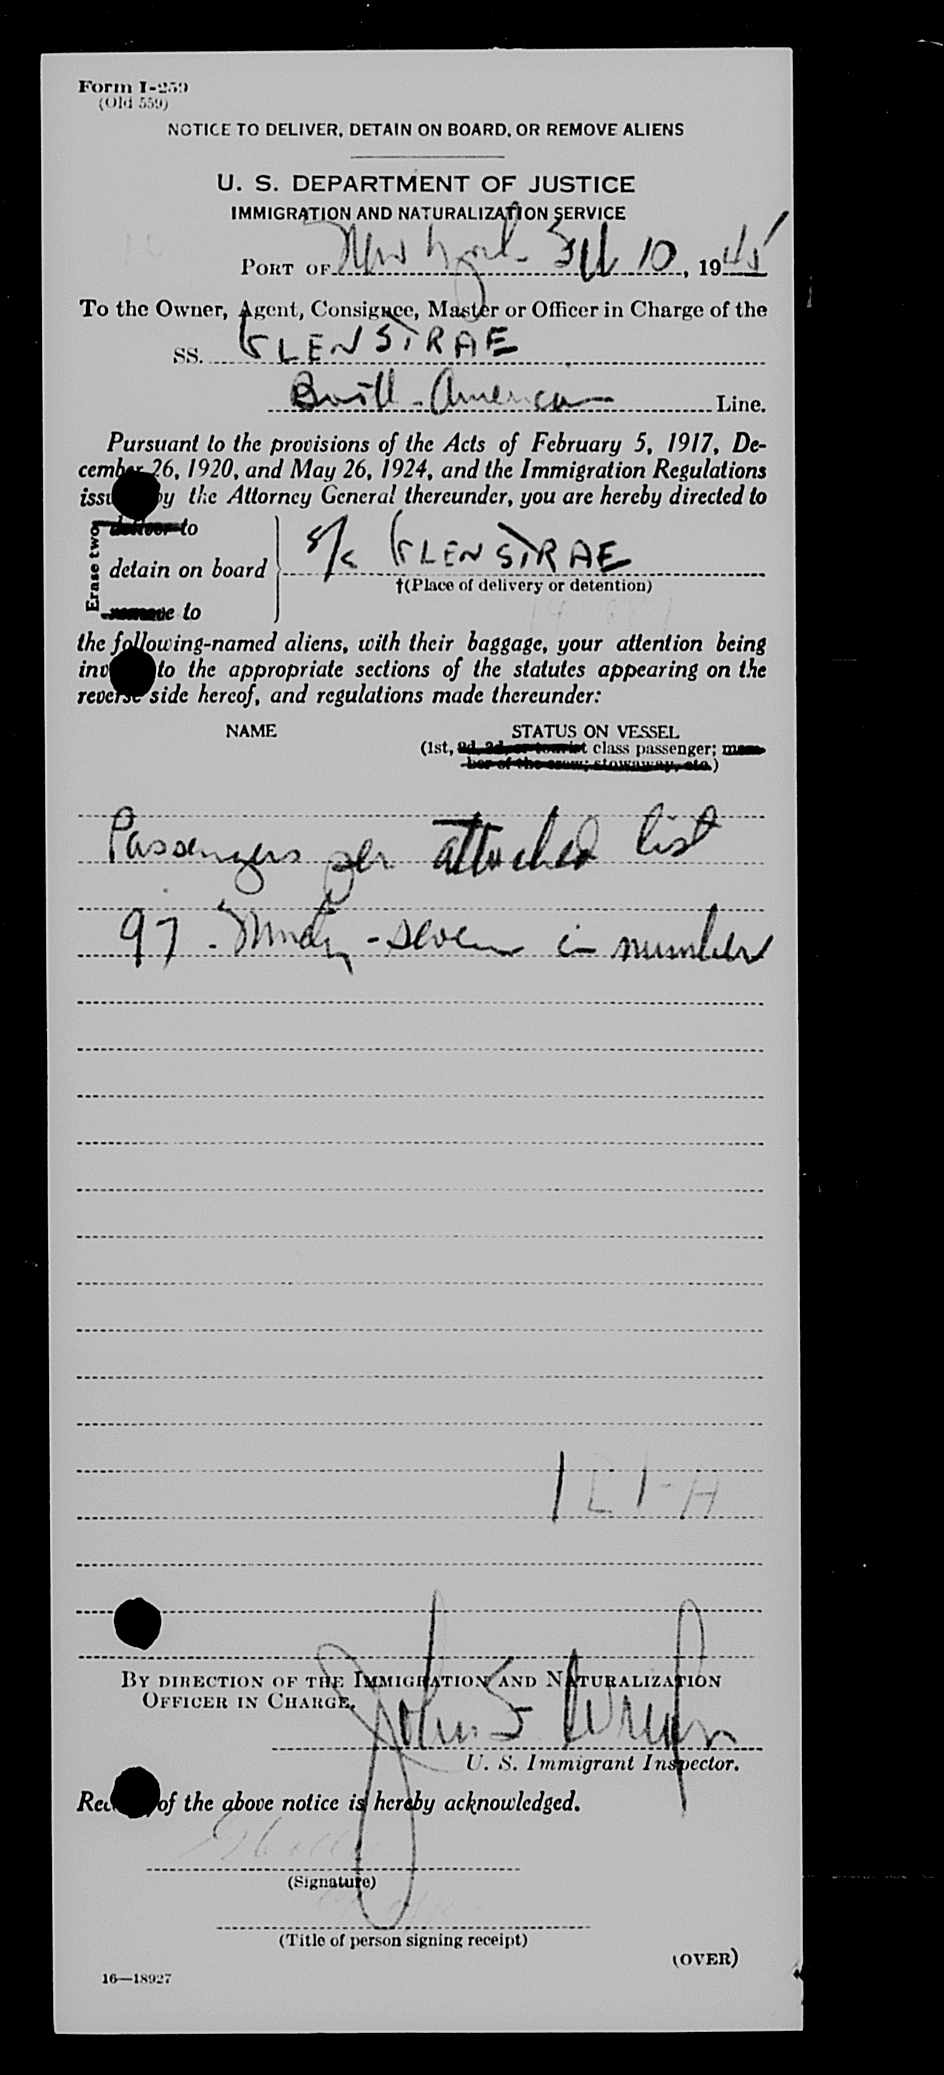 Form I-259
(Old 559)
NOTICE TO DELIVER, DETAIN ON BOARD, OR REMOVE ALIENS
U. S. DEPARTMENT OF JUSTICE
IMMIGRATION AND NATURALIZATION SERVICE
PORT OF New York Feb 10, 1945
To the Owner, Agent, Consignee, Master or Officer in Charge of the
SS. GLENSTRAE
American Line.
Pursuant to the provisions of the Acts of February 5, 1917, De-
cember 26, 1920, and May 26, 1924, and the Immigration Regulations
issu by the Attorney General thereunder, you are hereby directed to
Erase two
deliver to
detain on board S/S GLENSTRAE
†(Place of delivery or detention)
remove to
the following-named aliens, with their baggage, your attention being
inv to the appropriate sections of the statutes appearing on the
reverse side hereof, and regulations made thereunder:
NAME STATUS ON VESSEL
(1st, 2d, 3d, or tourist class passenger; mem-
ber of the crew; stowaway, etc.)
Passengers per attached list
97 - Ninety-seven in number
BY DIRECTION OF THE IMMIGRATION AND NATURALIZATION
OFFICER IN CHARGE.
John
U. S. Immigrant Inspector.
Rec of the above notice is hereby acknowledged.
(Signature)
(Title of person signing receipt)
(OVER)
16—18927